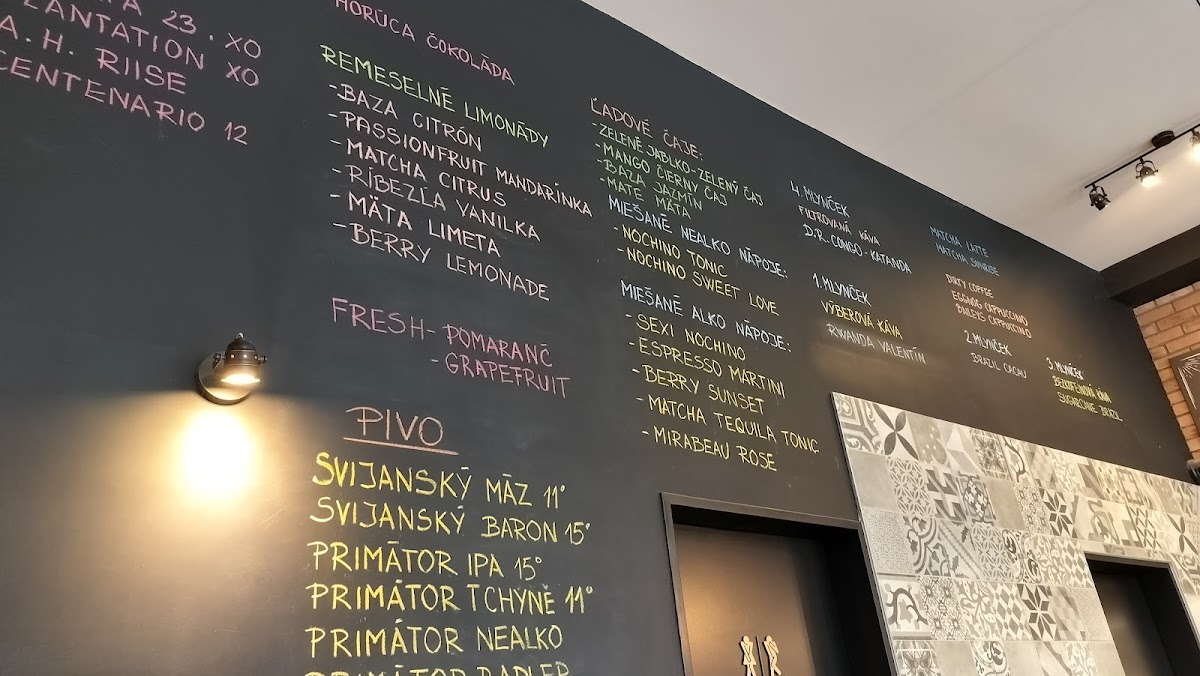 23 . XO
XO
A. H. RIISE
CENTENARIO 12
HORÚCA ČOKOLÁDA
REMESELNÉ LIMONÁDY
- BAZA CITRÓN
- PASSIONFRUIT MANDARÍNKA
- MATCHA CITRUS
- RÍBEZĽA VANILKA
- MÄTA LIMETA
- BERRY LEMONADE
FRESH - POMARANČ
- GRAPEFRUIT
PIVO
SVIJANSKÝ MÁZ 11°
SVIJANSKÝ BARON 15°
PRIMÁTOR IPA 15°
PRIMÁTOR TCHYNĚ 11°
PRIMÁTOR NEALKO
PRIMÁTOR RADLER
ĽADOVÉ ČAJE:
- ZELENÉ JABLKO - ZELENÝ ČAJ
- MANGO ČIERNY ČAJ
- BAZA JAZMÍN
- MATE MÄTA
MIEŠANÉ NEALKO NÁPOJE:
- NOCHINO TONIC
- NOCHINO SWEET LOVE
MIEŠANÉ ALKO NÁPOJE:
- SEXI NOCHINO
- ESPRESSO MARTINI
- BERRY SUNSET
- MATCHA TEQUILA TONIC
- MIRABEAU ROSE
4. MLYNČEK
FILTROVANÁ KÁVA
D.R. CONGO - KATANDA
1. MLYNČEK
VÝBEROVÁ KÁVA
RWANDA VALENTÍN
MATCHA LATTE
MATCHA SUNRISE
DIRTY COFFEE
EGGNOG CAPPUCCINO
BAILEYS CAPPUCCINO
2. MLYNČEK
BRAZIL CACAU
3. MLYNČEK
BEZKOFEÍNOVÁ KÁVA
SUGARCANE BRAZIL